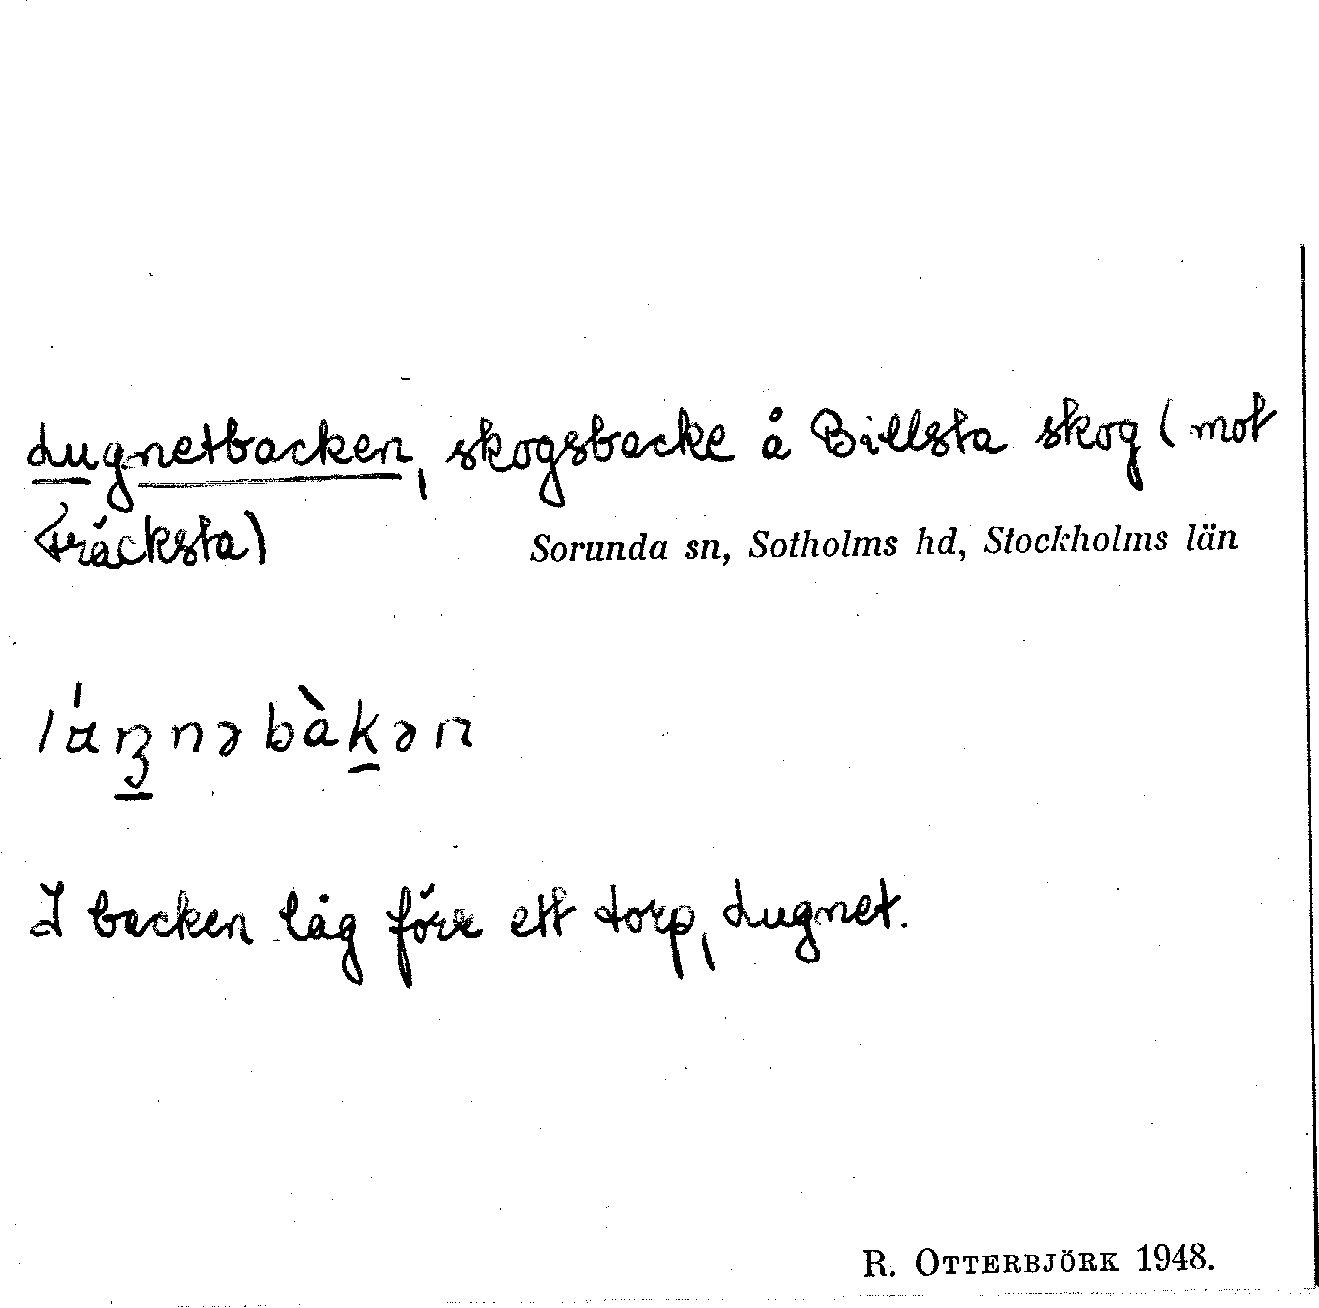 Lugnetbacken, skogsbacke å Billsta skog (mot
Fräcksta)
Sorunda sn, Sotholms hd, Stockholms län
I backen låg förr ett torp, Lugnet.
R. OTTERBJÖRK 1948.